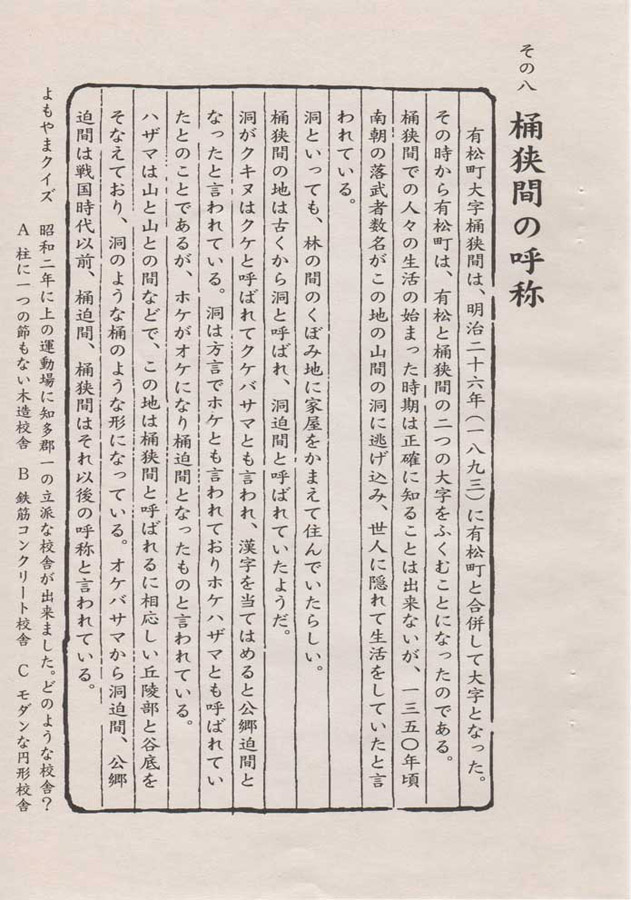 その八
桶狭間の呼称
有松町大字桶狭間は、明治二十六年（一八九三）に有松町と合併して大字となった。
その時から有松町は、有松と桶狭間の二つの大字をふくむことになったのである。
桶狭間での人々の生活の始まった時期は正確に知ることは出来ないが、一三五〇年頃
南朝の落武者数名がこの地の山間の洞に逃げ込み、世人に隠れて生活をしていたと言
われている。
洞といっても、林の間のくぼみ地に家屋をかまえて住んでいたらしい。
桶狭間の地は古くから洞と呼ばれ、洞迫間と呼ばれていたようだ。
洞がクキヌはクケと呼ばれてクケバサマとも言われ、漢字を当てはめると公郷迫間と
なったと言われている。洞は方言でホケとも言われておりホケハザマとも呼ばれてい
たとのことであるが、ホケがオケになり桶迫間となったものと言われている。
ハザマは山と山との間などで、この地は桶狭間と呼ばれるに相応しい丘陵部と谷底を
そなえており、洞のような桶のような形になっている。オケバサマから洞迫間、公郷
迫間は戦国時代以前、桶迫間、桶狭間はそれ以後の呼称と言われている。
よもやまクイズ　昭和二年に上の運動場に知多郡一の立派な校舎が出来ました。どのような校舎？
A 柱に一つの節もない木造校舎　B 鉄筋コンクリート校舎　C モダンな円形校舎